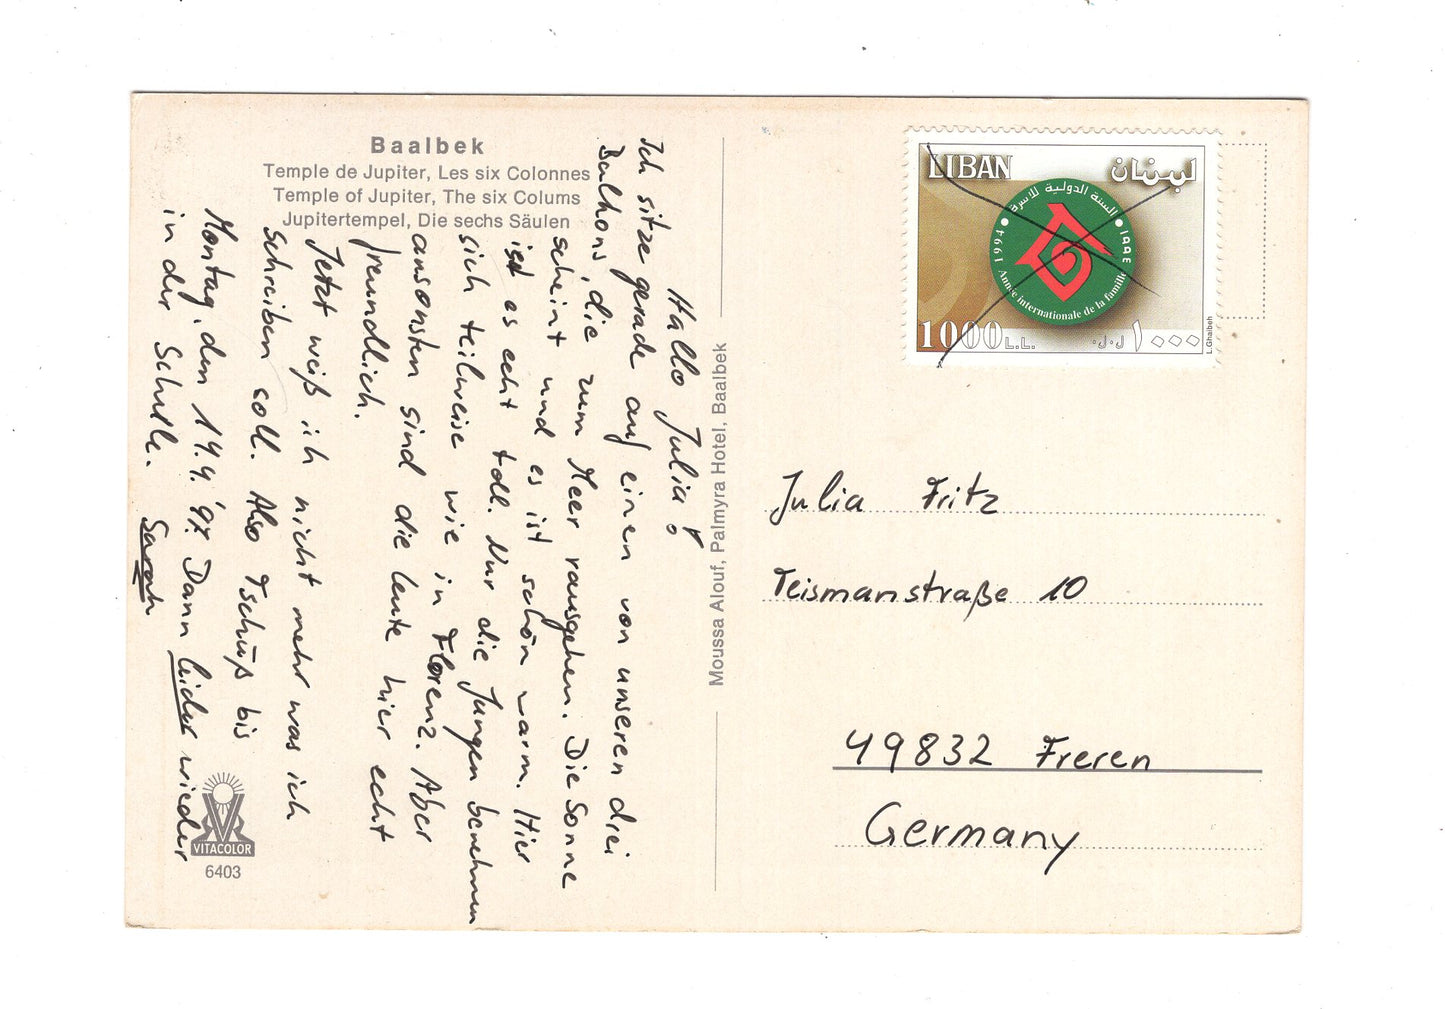 Baalbek
Temple de Jupiter, Les six Colonnes
Temple of Jupiter, The six Colums
Jupitertempel, Die sechs Säulen
Hallo Julia!
Ich sitze gerade auf einen von unseren drei
Balkons, die zum Meer rausgehen. Die Sonne
scheint und es ist schön warm. Hier
ist es echt toll. Nur die Jungen benehmen
sich teilweise wie in Florenz. Aber
ansonsten sind die Leute hier echt
freundlich.
Jetzt weiß ich nicht mehr was ich
schreiben soll. Also Tschüß bis
Montag, den 14.4. '97. Dann leider wieder
in der Schule.
Sarah
VITACOLOR
6403
Moussa Alouf, Palmyra Hotel, Baalbek
LIBAN لبنان
السنة الدولية للأسرة
1994 ١٩٩٤
Année internationale de la famille
1000 L.L. ١٠٠٠ ل.ل.
L.Ghaibeh
Julia Fritz
Teismanstraße 10
49832 Freren
Germany